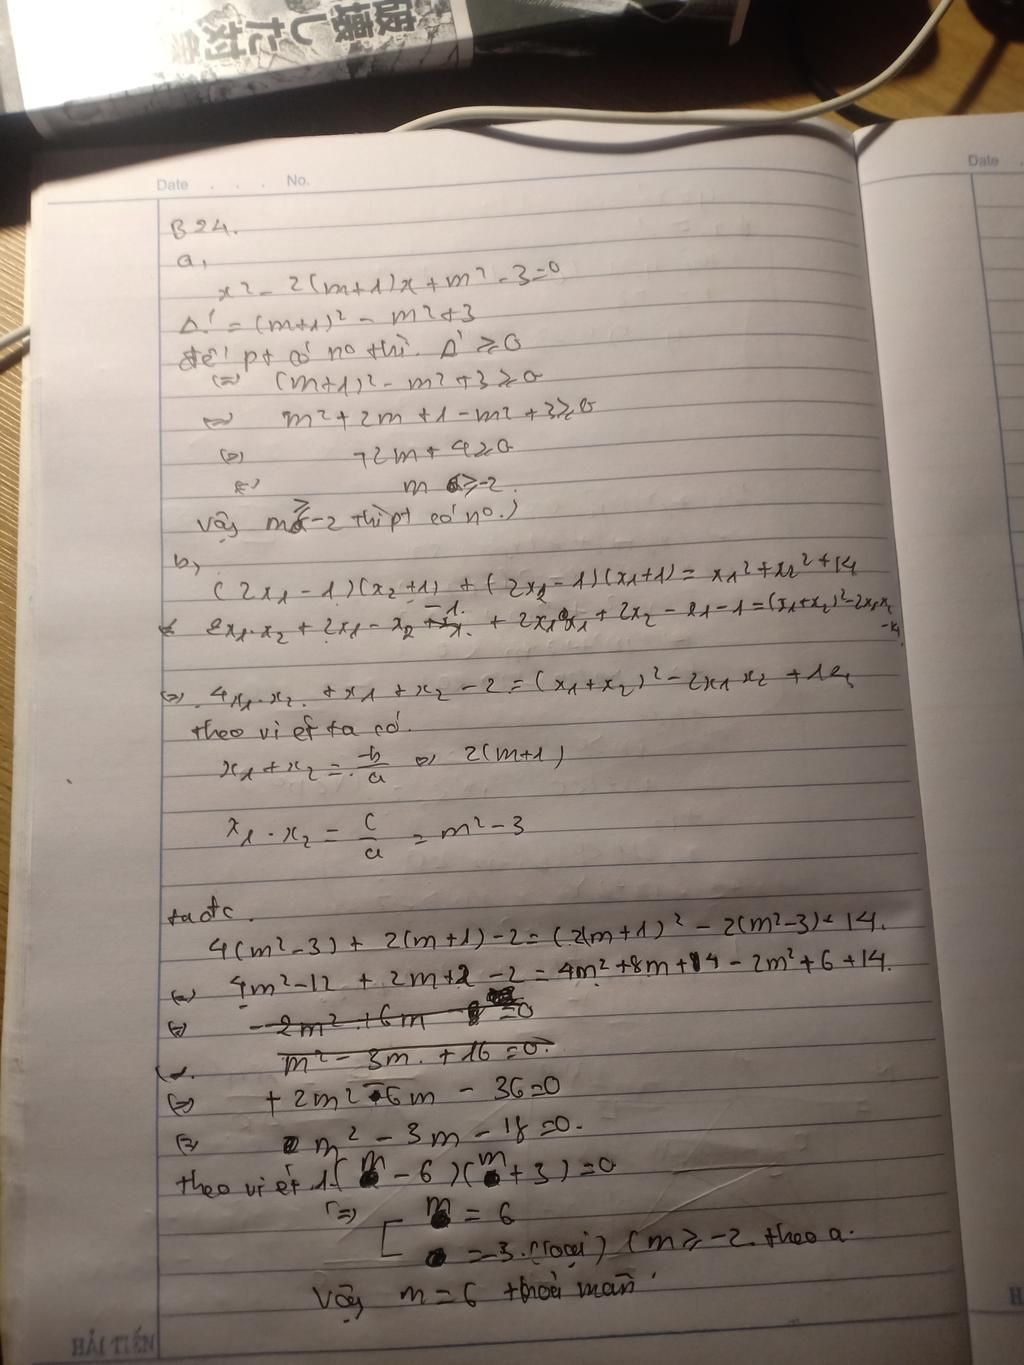 Date . . . No.
Date
B 24.
a,
x² - 2(m+1)x + m² - 3 = 0
Δ' = (m+1)² - m² + 3
để pt có no thì Δ' ≥ 0
(=) (m+1)² - m² + 3 ≥ 0
(=) m² + 2m + 1 - m² + 3 ≥ 0
(=) +2m + 4 ≥ 0
(=) m ≥ -2.
Vậy m ≥ -2 thì pt có no.)
b,
(2x₁ - 1)(x₂ + 1) + (2x₂ - 1)(x₁ + 1) = x₁² + x₂² + 14
2x₁.x₂ + 2x₁ - x₂ - 1 + 2x₁x₁ + 2x₂ - x₁ - 1 = (x₁+x₂)² - 2x₁x₂
(=) 4x₁.x₂ + x₁ + x₂ - 2 = (x₁+x₂)² - 2x₁x₂ + 14
theo vi ét ta có.
x₁ + x₂ = -b/a (=) 2(m+1)
x₁.x₂ = c/a = m² - 3
ta đc.
4(m² - 3) + 2(m+1) - 2 = (2(m+1)² - 2(m² - 3) + 14.
(=) 4m² - 12 + 2m + 2 - 2 = 4m² + 8m + 4 - 2m² + 6 + 14.
(=) - 2m² + 6m = 0
m² - 3m + 16 = 0.
(=) + 2m² - 6m - 36 = 0
(=) m² - 3m - 18 = 0.
theo vi ét (m - 6)(m + 3) = 0
(=) [ m = 6
= -3.(loại) (m ≥ -2 theo a.
Vậy m = 6 thoả mãn
HẢI TIẾN